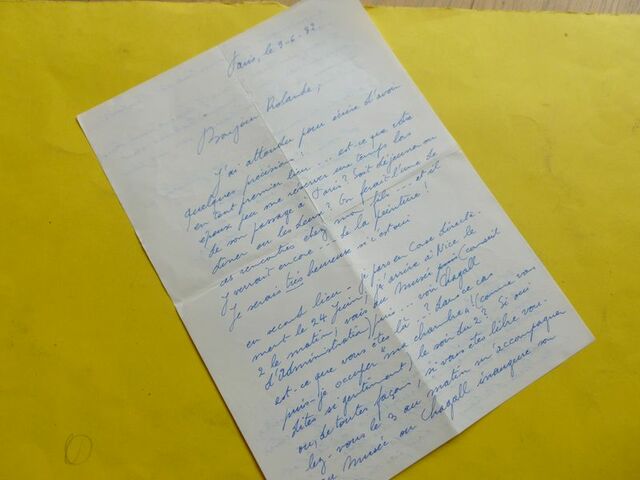 Paris, le 9-6-82
Bonjour Rolande,
J'ai attendu pour écrire d'avoir
quelques précisions!
en tout premier lieu.... est-ce que votre
époux peu me réserver un temps lors
de son passage à Paris? Soit déjeuner ou
dîner ou les deux? On ferait l'une de
ces rencontres chez mon fils.... et il
y verrait encore... de la peinture!
Je serais très heureuse si c'est oui
en second lieu - je pars en Corse directe-
ment le 24 Juin, j'arrive à Nice le
2 le matin! vais au musée (conseil
d'administration) puis... voir Chagall
est-ce que vous êtes là? dans ce cas
puis-je occuper "ma chambre"! (comme vous
dites si gentiment) le soir du 2? Si oui
ou, de toutes façons, si vous êtes libre vou-
lez-vous le 3 au matin m'accompagner
au musée où Chagall inaugure son